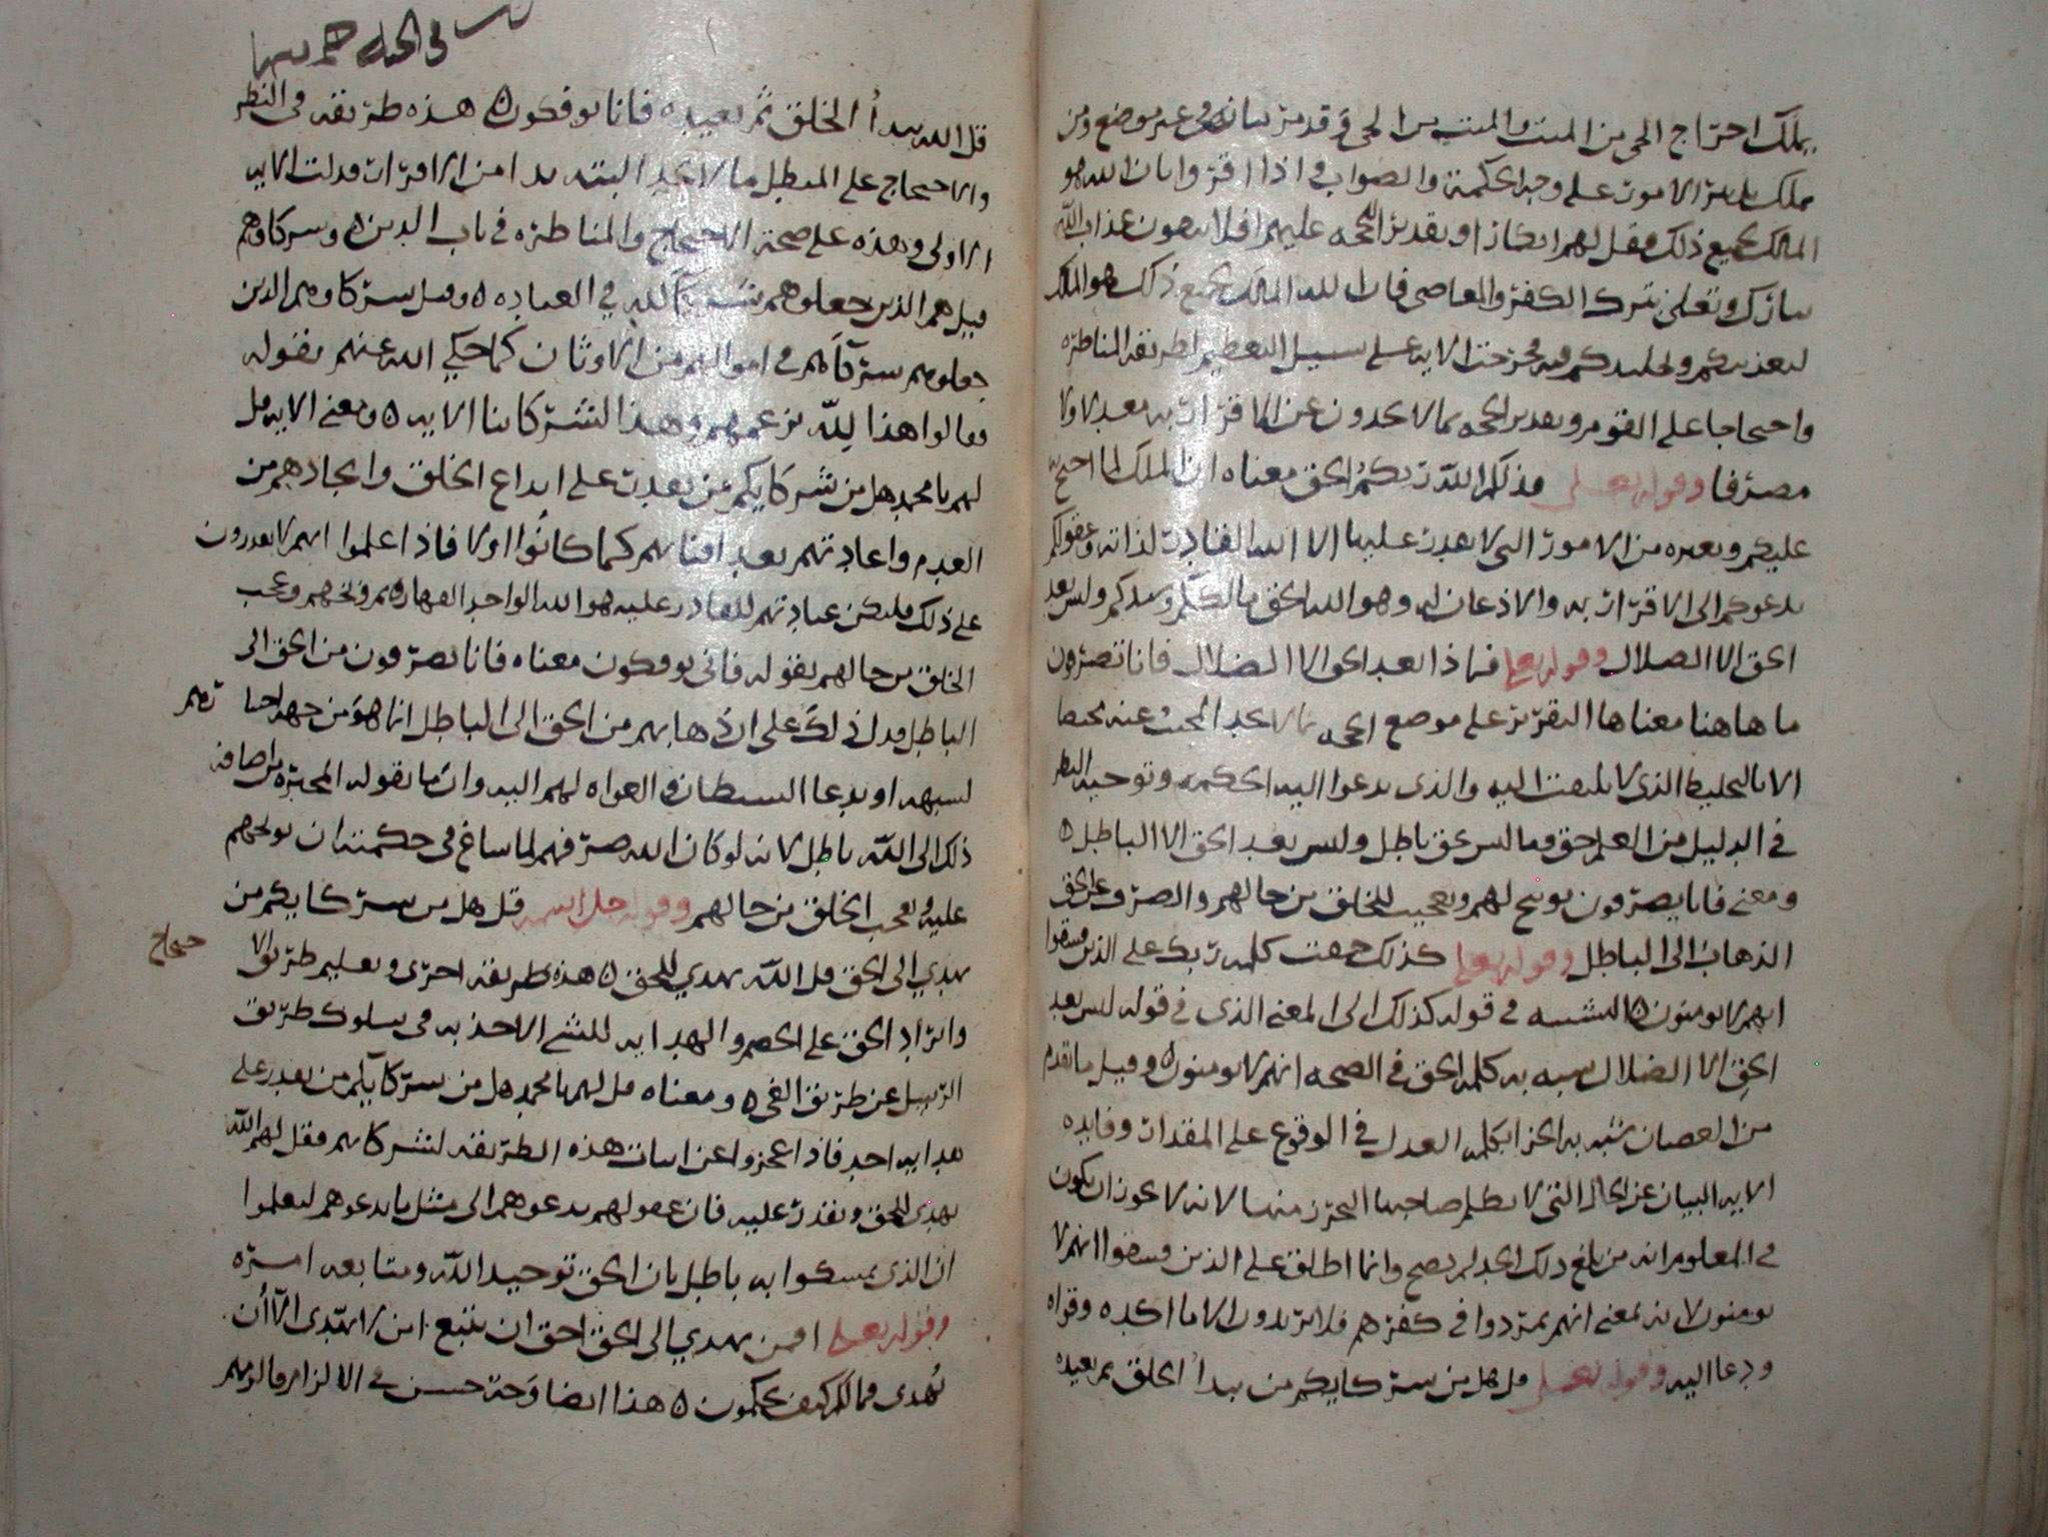 يملك اخراج الحي من الميت والميت من الحي وقد مر بيانه في غير موضع ومن
يملك تدبير الامور على وجه الحكمة والصواب فاذا اقروا بان الله هو
المالك لجميع ذلك فقل لهم انكارا وتقديرا للحجه عليهم افلا تتقون عذاب الله
تبارك وتعلى بترك الكفر والمعاصي فان الله المالك لجميع ذلك هو المالك
لتعذيبكم وتخليدكم فيه فخرجت الايه على سبيل التعظيم لطريقه المناظره
واحتجاجا على القوم وتقدير الحجه بما لا يجدون عن الاقرار به معدلا ولا
مصرفا وقوله تعالى فذلكم الله ربكم الحق معناه ان المالك لما احتج
عليكم وبغيره من الامور التي لا يقدر عليها الا الله القادر لذاته وعقولكم
تدعوكم الى الاقرار به والاذعان له وهو الله الحق مالككم وسيدكم وليس بعد
الحق الا الضلال وقوله تعلى فماذا بعد الحق الا الضلال فانا تصرفون
ما هاهنا معناها التقرير على موضع الحجه لانه لا يجد المجيب عنه محيصا
الا بالتخليط الذي لا يلتفت اليه والذي يدعوا اليه الحكمه وتوجيه النظر
في الدليل من العلم حق وما ليس بحق باطل وليس بعد الحق الا الباطل ه
ومعنى فانا يصرفون توبيخ لهم وتعجيب للخلق من حالهم والصرف عن الحق
الذهاب الى الباطل وقوله تعلى كذلك حقت كلمه ربك على الذين فسقوا
انهم لا يومنون ه التشبيه في قوله كذلك الى المعنى الذي في قوله ليس بعد
الحق الا الضلال شبه به كلمه الحق في الصحه انهم لا يومنون ه وقيل ما تقدم
من العصيان شبه به الجزا بكلمه العدل في الوقوع على المقدار وفايده
الايه البيان عن الحال التي لا يظلم صاحبها التحرز منها لانه لا يجوز ان يكون
في المعلوم انه من بلغ ذلك الحد لم يصح وانما اطلق على الذين فسقوا انهم لا
يومنون لانه بمعنى انهم تمردوا في كفرهم فلا تريدون الا ما اكده وقواه
ودعا اليه وقوله تعلى قل هل من شركايكم من يبدأ الخلق ثم يعيده
قل الله يبدأ الخلق ثم يعيده فانا توفكون ه هذه طريقه في النظر
والاحتجاج على المبطل ما لا يجد البته بدا من الاقرار ودلت الايه
الاولى وهذه على صحة الاحتجاج والمناظره في باب الدين ه وشركاوهم
قيل هم الذين جعلوهم شركآ لله في العباده ه وقيل شركاوهم الذين
جعلوهم شركآهم في اموالهم من الاوثان كما حكي الله عنهم بقوله
فقالوا هذا لله بزعمهم وهذا لشركائنا الايه ه ومعنى الايه قل
لهم يا محمد هل من شركايكم من يقدر على ابداع الخلق وايجادهم من
العدم واعادتهم بعد افنائهم كما كانوا اولا فاذا علموا انهم لا يقدرون
على ذلك فلتكن عبادتهم للقادر عليه هو الله الواحد القهار ثم وبخهم وعجب
الخلق من حالهم بقوله فانى توفكون معناه فانا تصرفون من الحق الى
الباطل فدل ذلك على ان ذهابهم من الحق الى الباطل انما هو من جهه احنا تهم
لشبهه او بدعا الشيطان والغواه لهم اليه وان ما تقوله المجبره من اضافه
ذلك الى الله باطل لانه لو كان الله صرفهم لما ساغ في حكمته ان يوبخهم
عليه ويعجب الخلق من حالهم وقوله جل اسمه قل هل من شركايكم من
يهدي الى الحق قل الله يهدي للحق ه هذه طريقه اخرى وتعليم طريق الا حتجاج
وايراد الحق على الخصم والهدايه للشي الاخذ به في سلوك طريق
الرشد عن طريق الغي ه ومعناه قل لهم يا محمد هل من شركايكم من يقدر على
هدايه احد فاذا عجزوا عن اثبات هذه الطريقه لشركايهم فقل لهم الله
يهدي للحق ويقدر عليه فان عقولهم تدعوهم الى مثل ما تدعوهم ليعلموا
ان الذي تمسكوا به باطل بان الحق توحيد الله ومتابعه امره
وقوله تعلى افمن يهدي الى الحق احق ان يتبع امن لا يهتدى الا ان
يُهدى فما لكم كيف تحكمون ه هذا ايضا وجه حسن في الالزام فالزمهم